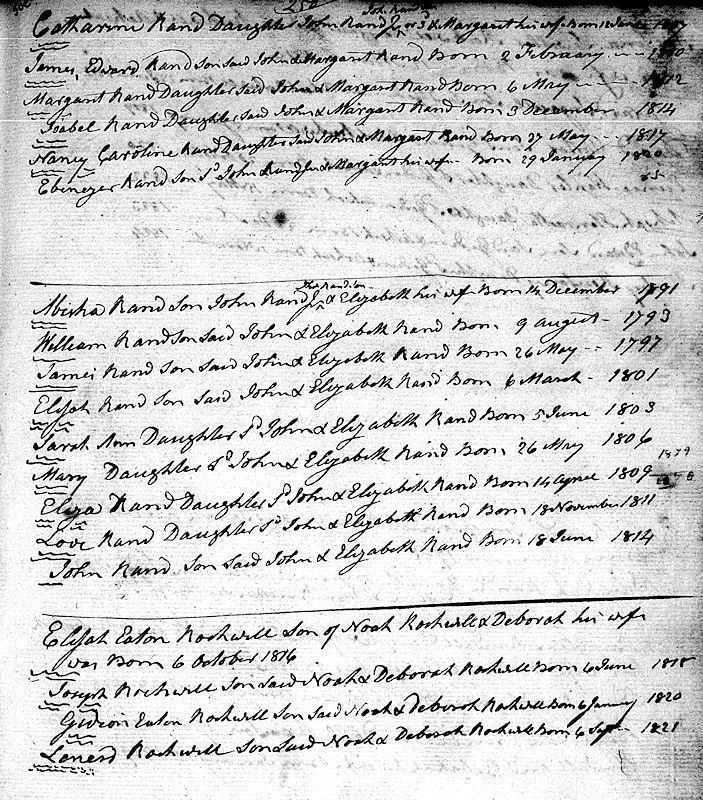 250
Joh. Rand 3
Catharine Rand Daughter John Rand Jr or 3 & Margaret his wife Born 12 June
James Edward Rand Son Said John & Margaret Rand Born 2 February
Margaret Rand Daughter Said John & Margaret Rand Born 6 May 1812
Isabel Rand Daughter Said John & Margaret Rand Born 3 December 1814
Nancy Caroline Rand Daughter Said John & Margaret Rand Born 27 May 1817
Ebenezer Rand Son Sd John Rand Jr & Margaret his wife Born 29 January 1820
25
Abisha Rand Son John Rand Jr & Elizabeth his wife Born 14 December 1791
William Rand Son Said John & Elizabeth Rand Born 9 August 1793
James Rand Son Said John & Elizabeth Rand Born 26 May 1797
Elijah Rand Son Said John & Elizabeth Rand Born 6 March 1801
Sarah Ann Daughter Sd John & Elizabeth Rand Born 5 June 1803
Mary Daughter Sd John & Elizabeth Rand Born 26 May 1806
1879
Eliza Rand Daughter Sd John & Elizabeth Rand Born 14 April 1809
Love Rand Daughter Sd John & Elizabeth Rand Born 18 November 1811
John Rand Son Said John & Elizabeth Rand Born 18 June 1814
Elijah Eaton Rockwell Son of Noah Rockwell & Deborah his wife
was Born 6 October 1816
Joseph Rockwell Son Said Noah & Deborah Rockwell Born 6 June 1818
Gidion Eaton Rockwell Son Said Noah & Deborah Rockwell Born 6 January 1820
Lenerd Rockwell Son Said Noah & Deborah Rockwell Born 6 Sept 1821